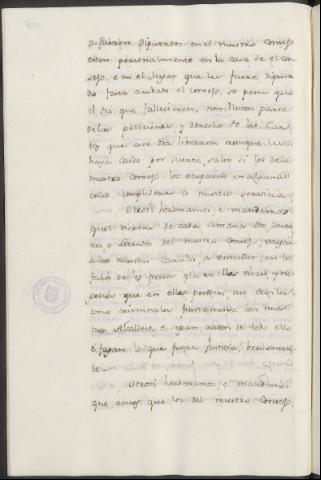 o fueren Diputados en el nuestro Consejo
esten personalmente en la casa de el con
sejo, e en el lugar que les fuere diputa
do para ambado el consejo, so pena que
el dia que fallecieren, non lleven parte
de las peticiones y derecho de las Car
tas que ese dia libraren aunque les
haya caido por suerte, salvo si los del
nuestro Consejo los ocuparen en algunas
cosas complideras a nuestro servicio.
Otrosi hordenamos, e mandamos
que el viernes de cada semana dos
e letrados del nuestro Consejo, vayan
a las nuestras Carceles, a entender en los
fechos de los presos que en ellas estan, y de
pesion que en ellas penden, asi civiles
como criminales juntamente con nues
tros Alcaldes, e sepan razon de todo ello
e fagan lo que fuere justicia, brevemen
te.
Otrosi hordenamos, e mandamos
que antes que los del nuestro Consejo,